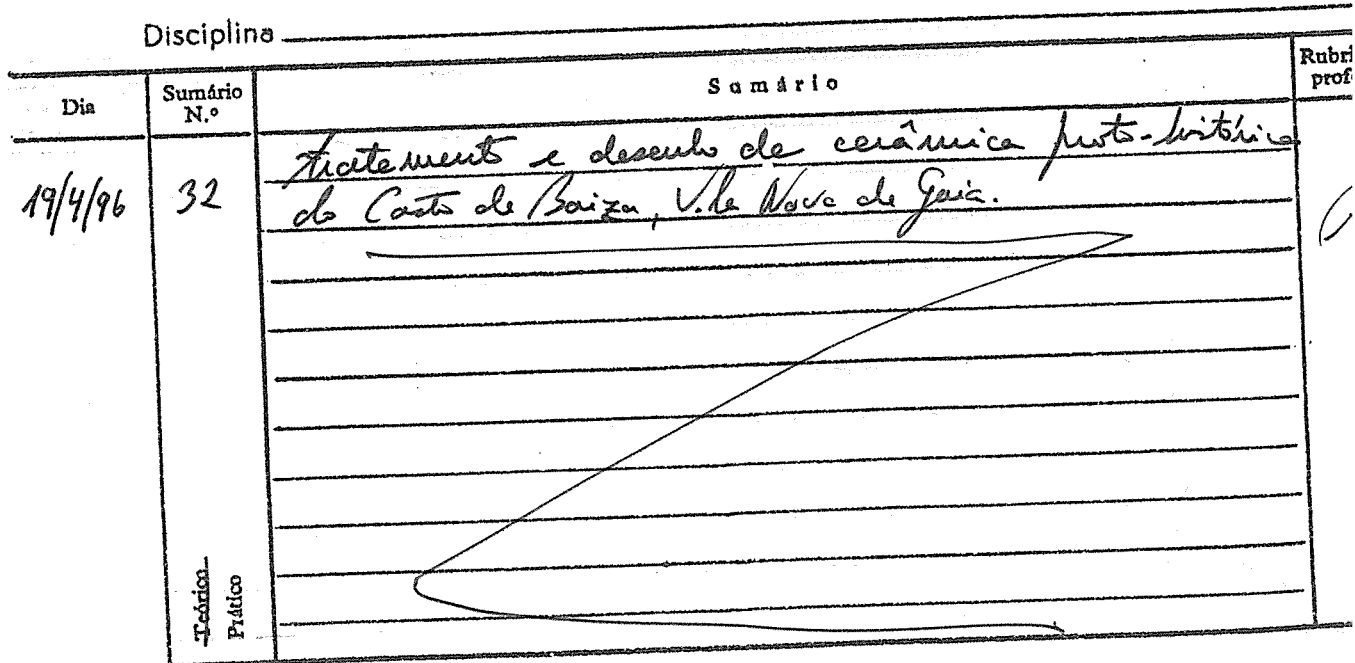 Disciplina
Dia
Sumário N.º
Sumário
Rubri
prof
19/4/96
32
tratamento e desenho de cerâmica proto-histórica
do Castro de Baiza, Vila Nova de Gaia.
Teórico
Prático